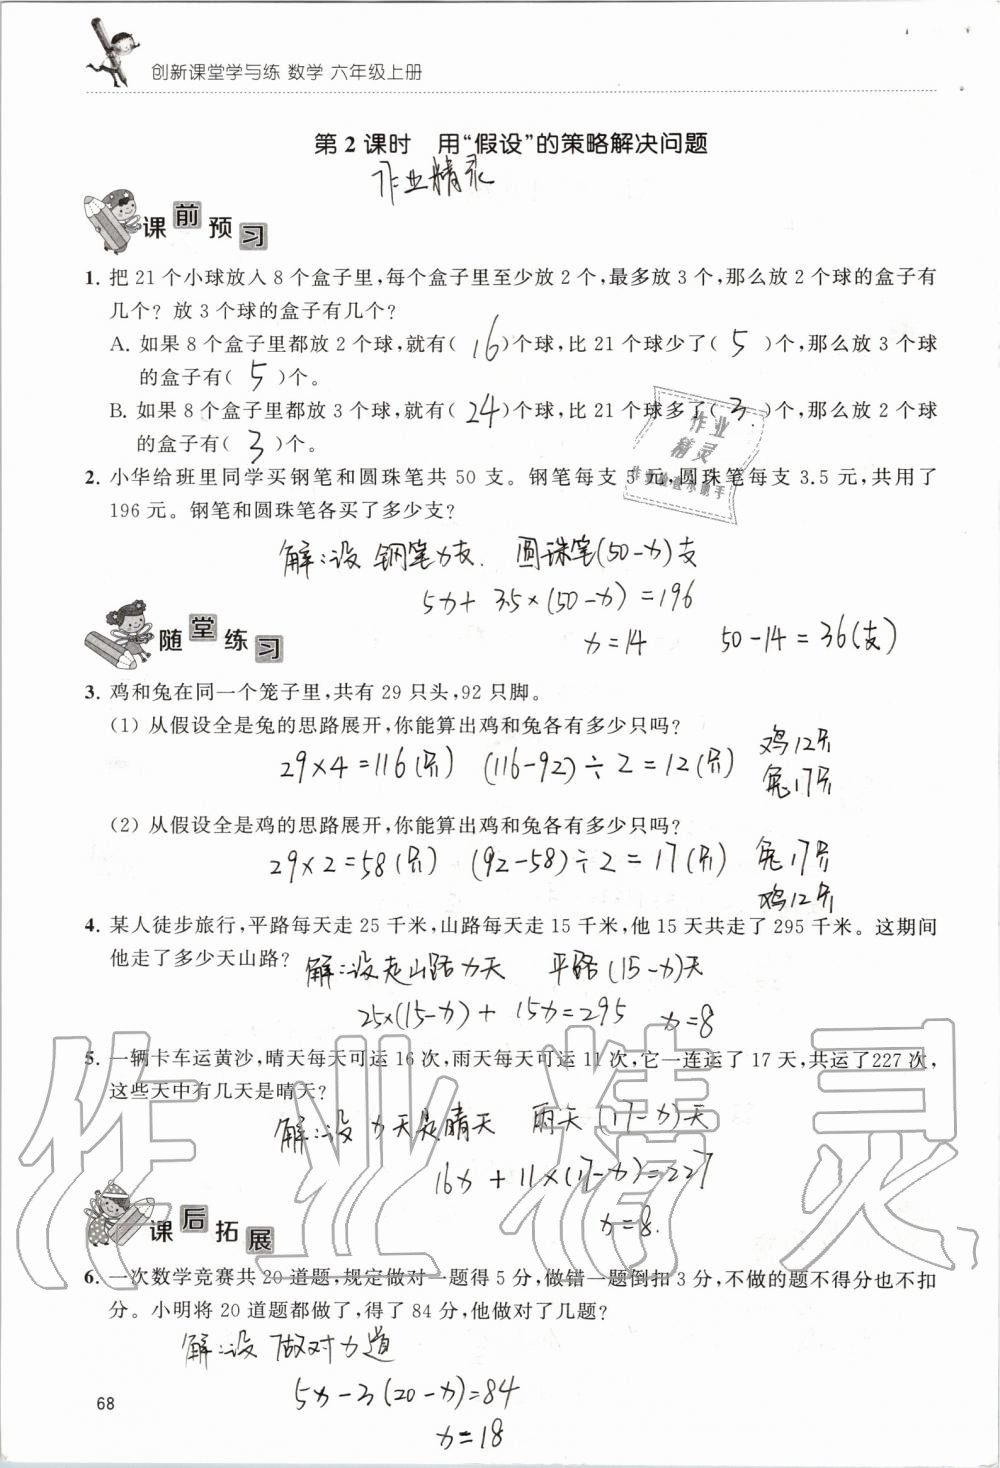 创新课堂学与练 数学 六年级上册
第2课时 用“假设”的策略解决问题
作业精灵
课前预习
1. 把21个小球放入8个盒子里,每个盒子里至少放2个,最多放3个,那么放2个球的盒子有
几个? 放3个球的盒子有几个?
A. 如果8个盒子里都放2个球,就有( 16 )个球,比21个球少了( 5 )个,那么放3个球
的盒子有( 5 )个。
B. 如果8个盒子里都放3个球,就有( 24 )个球,比21个球多了( 3 )个,那么放2个球
的盒子有( 3 )个。
作业
精灵
2. 小华给班里同学买钢笔和圆珠笔共50支。钢笔每支5元,圆珠笔每支3.5元,共用了
196元。钢笔和圆珠笔各买了多少支?
解:设 钢笔x支. 圆珠笔(50-x)支
5x+3.5×(50-x)=196
x=14 50-14=36(支)
随堂练习
3. 鸡和兔在同一个笼子里,共有29只头,92只脚。
(1) 从假设全是兔的思路展开,你能算出鸡和兔各有多少只吗?
29×4=116(只) (116-92)÷2=12(只) 鸡12只
兔17只
(2) 从假设全是鸡的思路展开,你能算出鸡和兔各有多少只吗?
29×2=58(只) (92-58)÷2=17(只) 兔17只
鸡12只
4. 某人徒步旅行,平路每天走25千米,山路每天走15千米,他15天共走了295千米。这期间
他走了多少天山路?
解:设走山路x天 平路(15-x)天
25×(15-x)+15x=295 x=8
5. 一辆卡车运黄沙,晴天每天可运16次,雨天每天可运11次,它一连运了17天,共运了227次,
这些天中有几天是晴天?
解:设x天是晴天 雨天(17-x)天
16x+11×(17-x)=227
x=8.
作业精灵
课后拓展
6. 一次数学竞赛共20道题,规定做对一题得5分,做错一题倒扣3分,不做的题不得分也不扣
分。小明将20道题都做了,得了84分,他做对了几题?
解:设做对x道
5x-3(20-x)=84
x=18
68